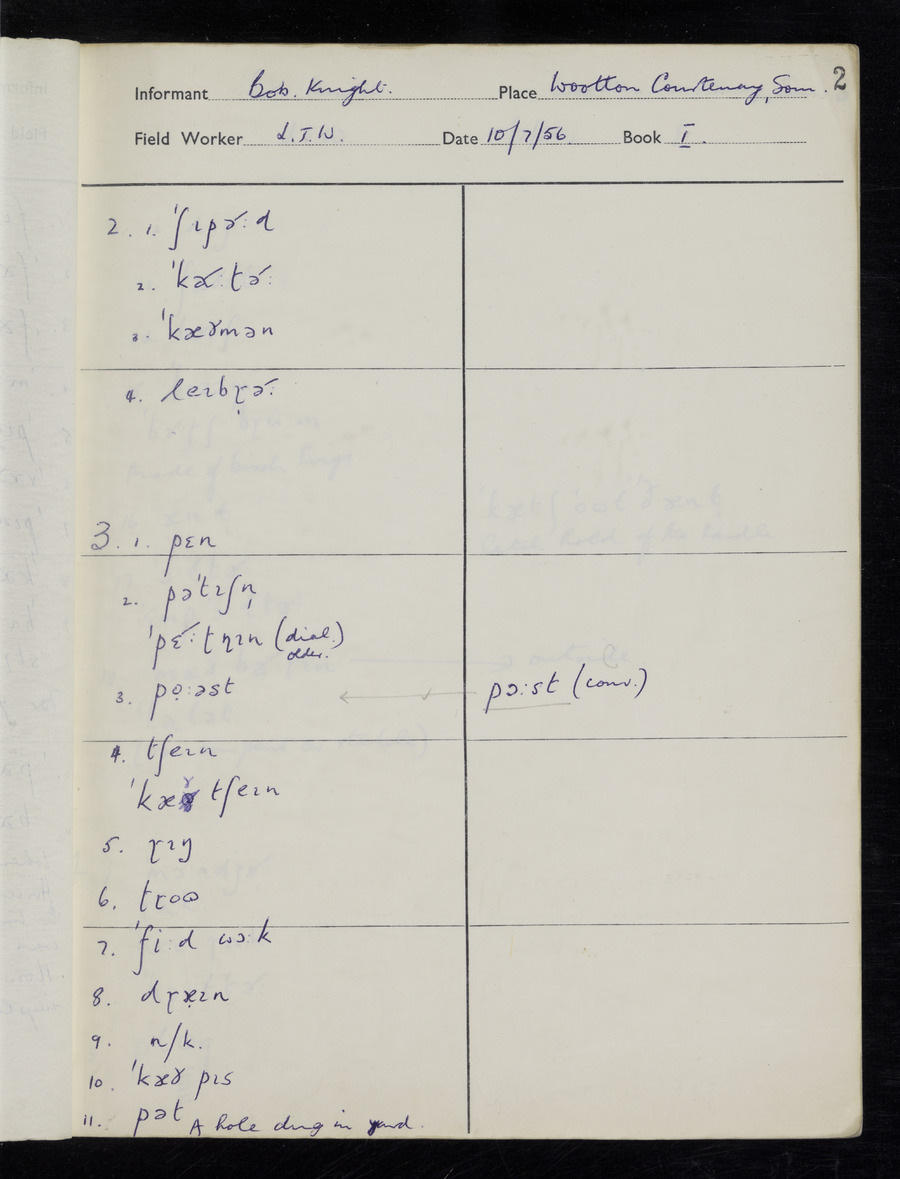 2
Informant Bob. Knight. Place Wootton Courtenay, Som.
Field Worker S.T.W. Date 10/7/56 Book I.
2. 1. ˈʃɪpɚːd
2. ˈkɑ˞ːtɚː
3. ˈkæɤmən
4. leɪbɽɚː
3. 1. pɛn
2. pəˈtɪʃn̩
ˈpɛ˞ːtɳɪn (dial. older.)
3. pọːəst pɔːst (conv.)
4. tʃeɪn
ˈkæɤ tʃeɪn
5. ɽɪŋ
6. tɽoɷ
7. ˈfiːd wɔːk
8. dɽæ̣ɪn
9. n/k.
10. ˈkæɤ pɪs
11. pət A hole dug in yard.